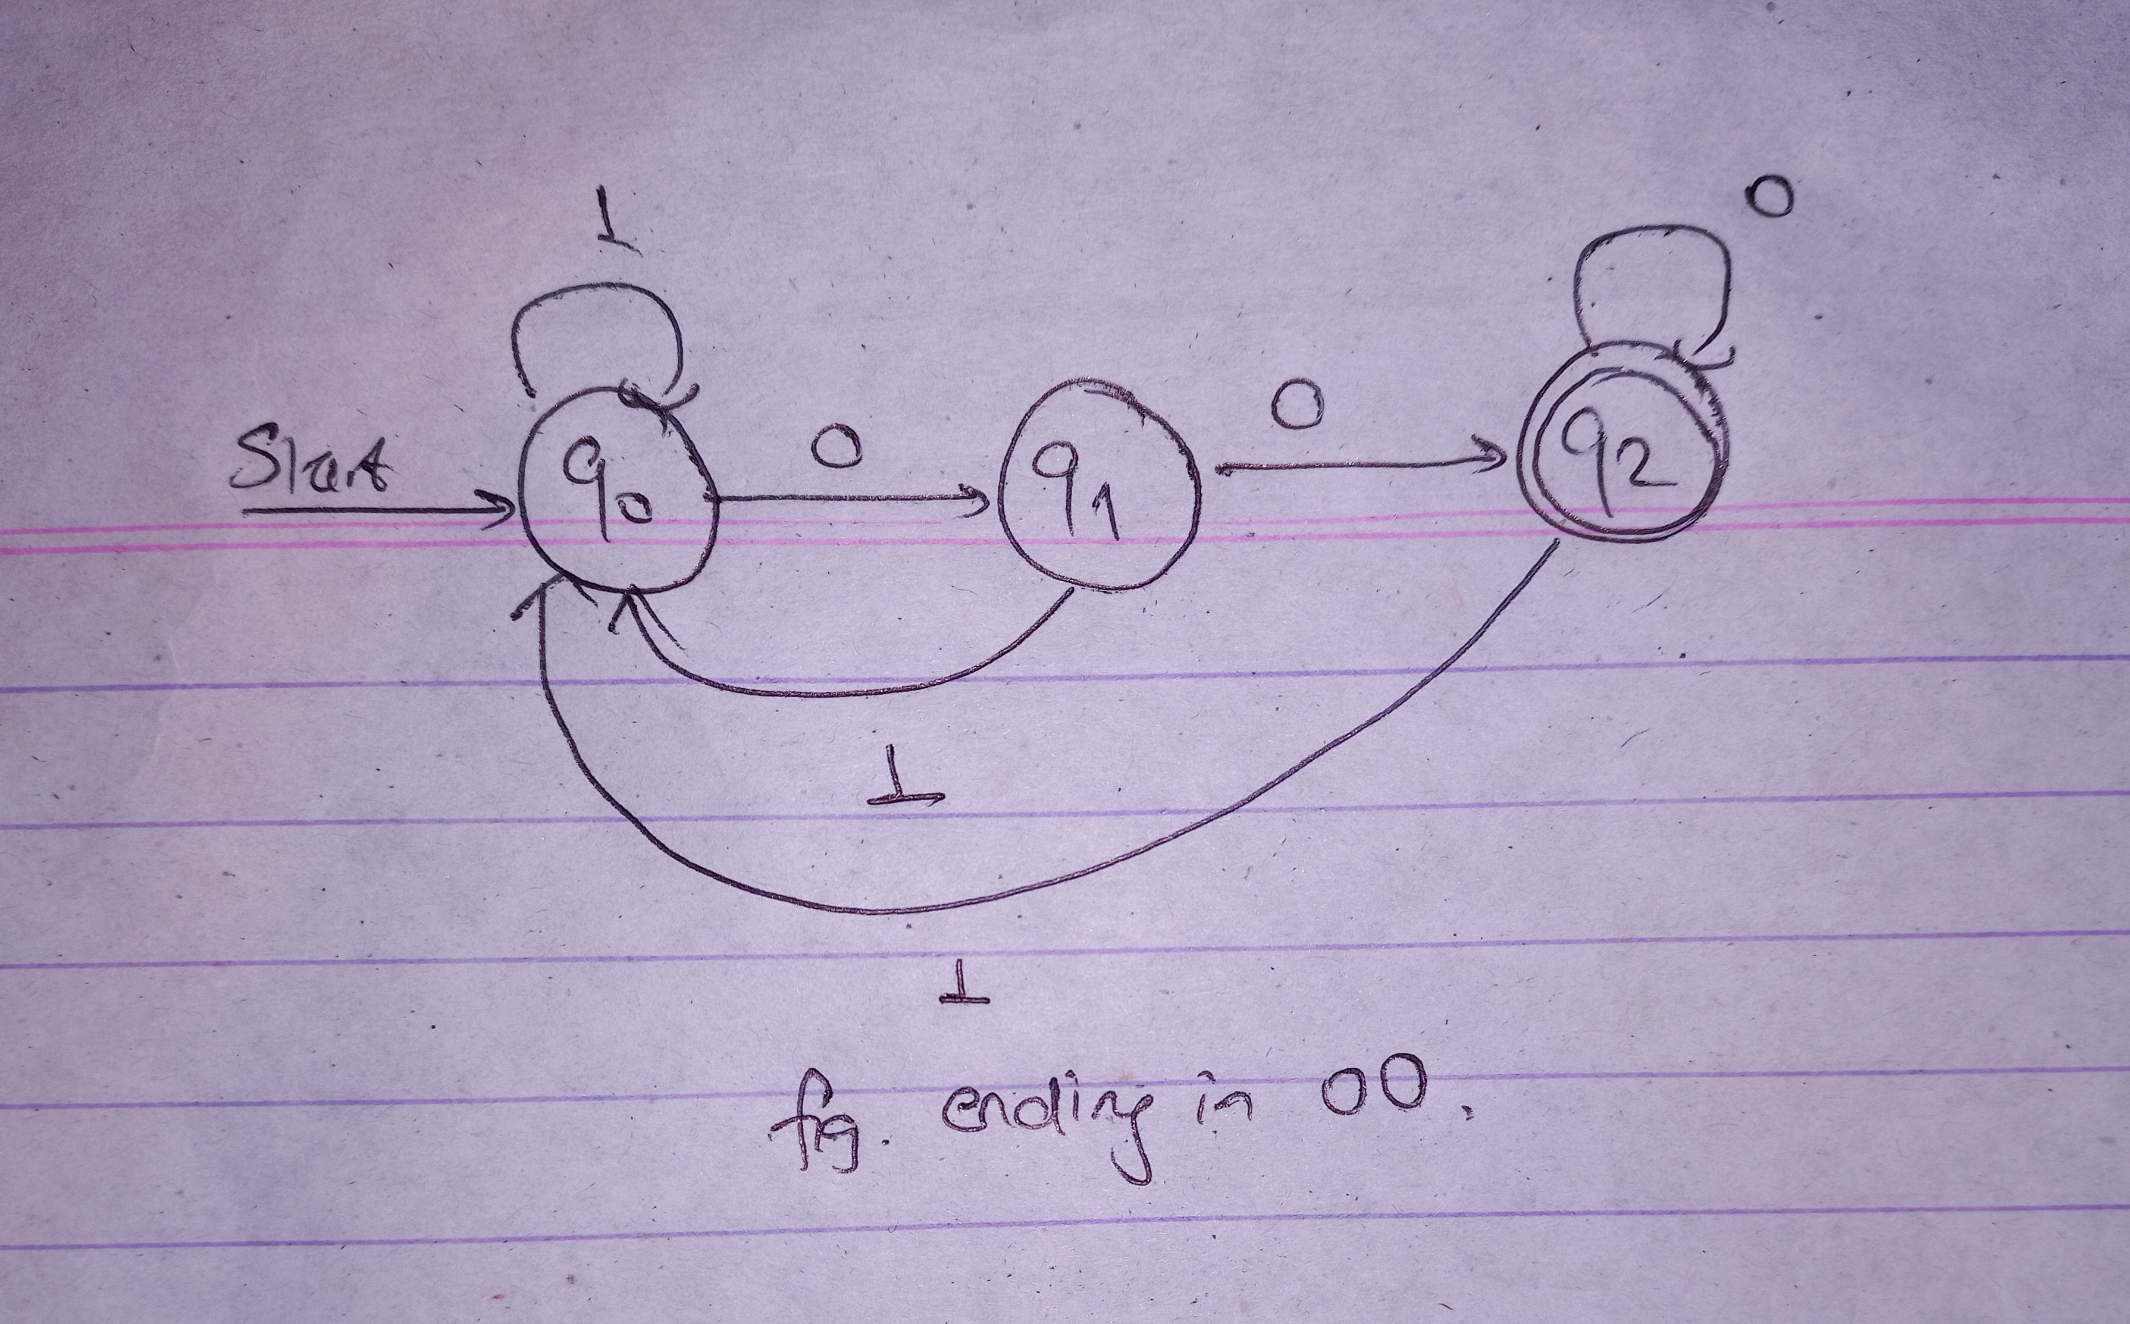 1
0
Start
q0
0
q1
0
q2
1
1
fig. ending in 00.